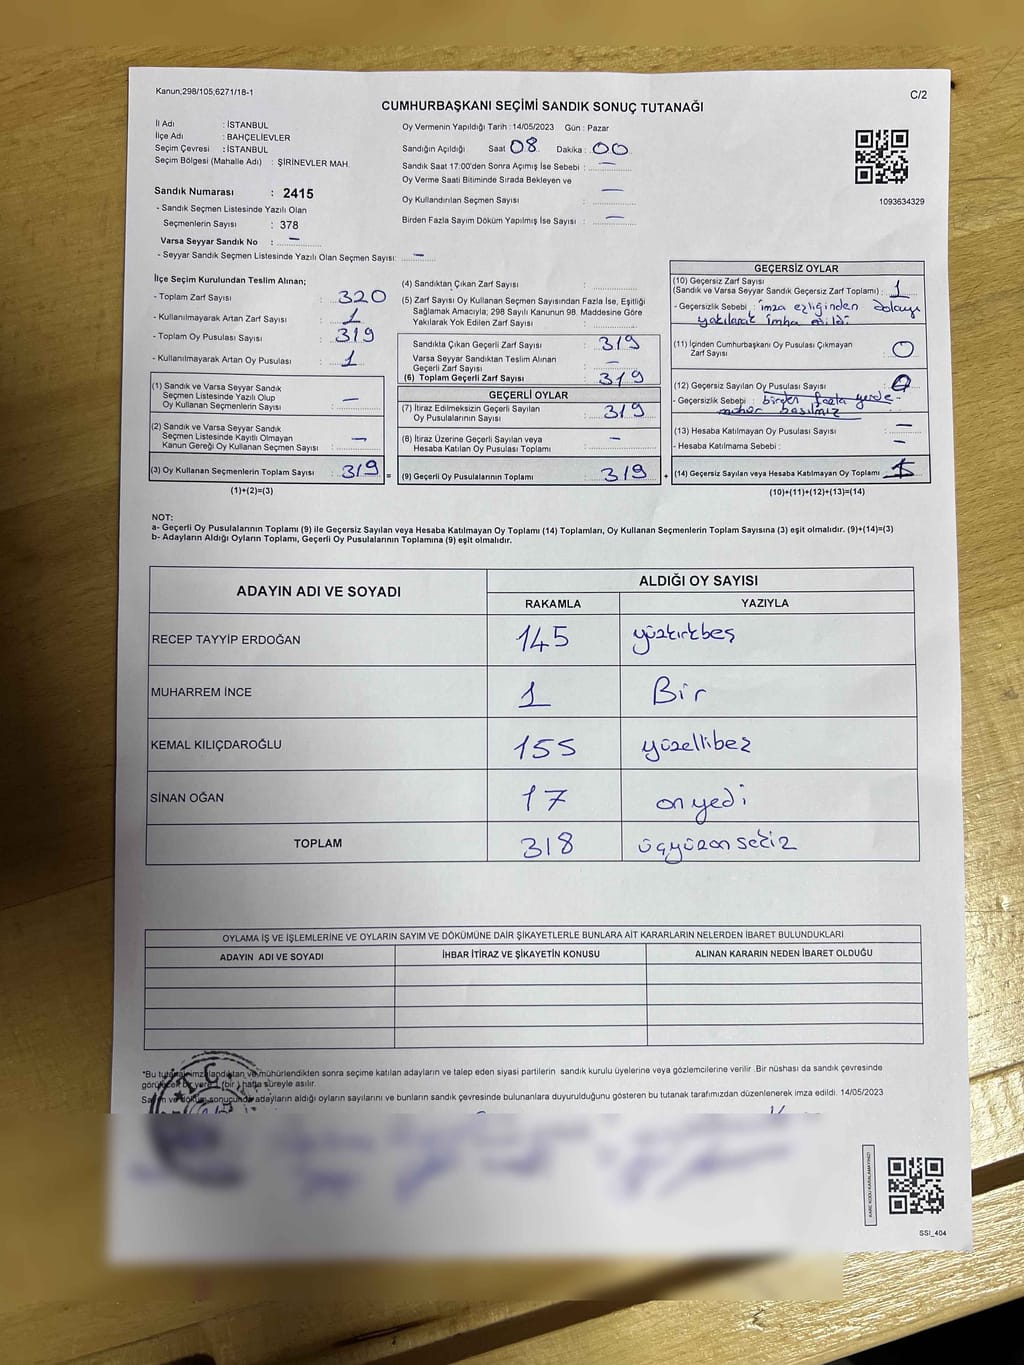 Kanun;298/105,6271/18-1
C/2
CUMHURBAŞKANI SEÇİMİ SANDIK SONUÇ TUTANAĞI
İl Adı : İSTANBUL
İlçe Adı : BAHÇELİEVLER
Seçim Çevresi : İSTANBUL
Seçim Bölgesi (Mahalle Adı) : ŞİRİNEVLER MAH.
Sandık Numarası : 2415
- Sandık Seçmen Listesinde Yazılı Olan
Seçmenlerin Sayısı : 378
Varsa Seyyar Sandık No : —
- Seyyar Sandık Seçmen Listesinde Yazılı Olan Seçmen Sayısı: —
Oy Vermenin Yapıldığı Tarih : 14/05/2023 Gün : Pazar
Sandığın Açıldığı Saat : 08 Dakika : 00
Sandık Saat 17:00'den Sonra Açımış İse Sebebi : —
Oy Verme Saati Bitiminde Sırada Bekleyen ve
Oy Kullandırılan Seçmen Sayısı : —
Birden Fazla Sayım Döküm Yapılmış İse Sayısı : —
1093634329
İlçe Seçim Kurulundan Teslim Alınan;
- Toplam Zarf Sayısı : 320
- Kullanılmayarak Artan Zarf Sayısı : 1
- Toplam Oy Pusulası Sayısı : 319
- Kullanılmayarak Artan Oy Pusulası : 1
(1) Sandık ve Varsa Seyyar Sandık
Seçmen Listesinde Yazılı Olup
Oy Kullanan Seçmenlerin Sayısı : —
(2) Sandık ve Varsa Seyyar Sandık
Seçmen Listesinde Kayıtlı Olmayan
Kanun Gereği Oy Kullanan Seçmen Sayısı : —
(3) Oy Kullanan Seçmenlerin Toplam Sayısı : 319 =
(1)+(2)=(3)
(4) Sandıktan Çıkan Zarf Sayısı :
(5) Zarf Sayısı Oy Kullanan Seçmen Sayısından Fazla İse, Eşitliği
Sağlamak Amacıyla; 298 Sayılı Kanunun 98. Maddesine Göre
Yakılarak Yok Edilen Zarf Sayısı :
Sandıkta Çıkan Geçerli Zarf Sayısı : 319
Varsa Seyyar Sandıktan Teslim Alınan
Geçerli Zarf Sayısı : —
(6) Toplam Geçerli Zarf Sayısı : 319
GEÇERLİ OYLAR
(7) İtiraz Edilmeksizin Geçerli Sayılan
Oy Pusulalarının Sayısı : 319
(8) İtiraz Üzerine Geçerli Sayılan veya
Hesaba Katılan Oy Pusulası Toplamı : —
(9) Geçerli Oy Pusulalarının Toplamı : 319 +
GEÇERSİZ OYLAR
(10) Geçersiz Zarf Sayısı
(Sandık ve Varsa Seyyar Sandık Geçersiz Zarf Toplamı) : 1
- Geçersizlik Sebebi : imza ezliğinden dolayı
yakılarak imha edildi
(11) İçinden Cumhurbaşkanı Oy Pusulası Çıkmayan
Zarf Sayısı : 0
(12) Geçersiz Sayılan Oy Pusulası Sayısı :
- Geçersizlik Sebebi : birden fazla yerde
mühür basılmış
(13) Hesaba Katılmayan Oy Pusulası Sayısı : —
- Hesaba Katılmama Sebebi : —
(14) Geçersiz Sayılan veya Hesaba Katılmayan Oy Toplamı :
(10)+(11)+(12)+(13)=(14)
NOT:
a- Geçerli Oy Pusulalarının Toplamı (9) ile Geçersiz Sayılan veya Hesaba Katılmayan Oy Toplamı (14) Toplamları, Oy Kullanan Seçmenlerin Toplam Sayısına (3) eşit olmalıdır. (9)+(14)=(3)
b- Adayların Aldığı Oyların Toplamı, Geçerli Oy Pusulalarının Toplamına (9) eşit olmalıdır.
ADAYIN ADI VE SOYADI ALDIĞI OY SAYISI
RAKAMLA YAZIYLA
RECEP TAYYİP ERDOĞAN 145 yüzkırkbeş
MUHARREM İNCE 1 Bir
KEMAL KILIÇDAROĞLU 155 yüzellibeş
SİNAN OĞAN 17 onyedi
TOPLAM 318 üçyüzonsekiz
OYLAMA İŞ VE İŞLEMLERİNE VE OYLARIN SAYIM VE DÖKÜMÜNE DAİR ŞİKAYETLERLE BUNLARA AİT KARARLARIN NELERDEN İBARET BULUNDUKLARI
ADAYIN ADI VE SOYADI İHBAR İTİRAZ VE ŞİKAYETİN KONUSU ALINAN KARARIN NEDEN İBARET OLDUĞU
*Bu tutanak imzalandıktan ve mühürlendikten sonra seçime katılan adayların ve talep eden siyasi partilerin sandık kurulu üyelerine veya gözlemcilerine verilir .Bir nüshası da sandık çevresinde
görülecek bir yere 1 (bir ) hafta süreyle asılır.
Sayım ve döküm sonucunda adayların aldığı oyların sayılarını ve bunların sandık çevresinde bulunanlara duyurulduğunu gösteren bu tutanak tarafımızdan düzenlenerek imza edildi. 14/05/2023
T.C.
KARE KODU KARALAMAYINIZ!
SSI_404